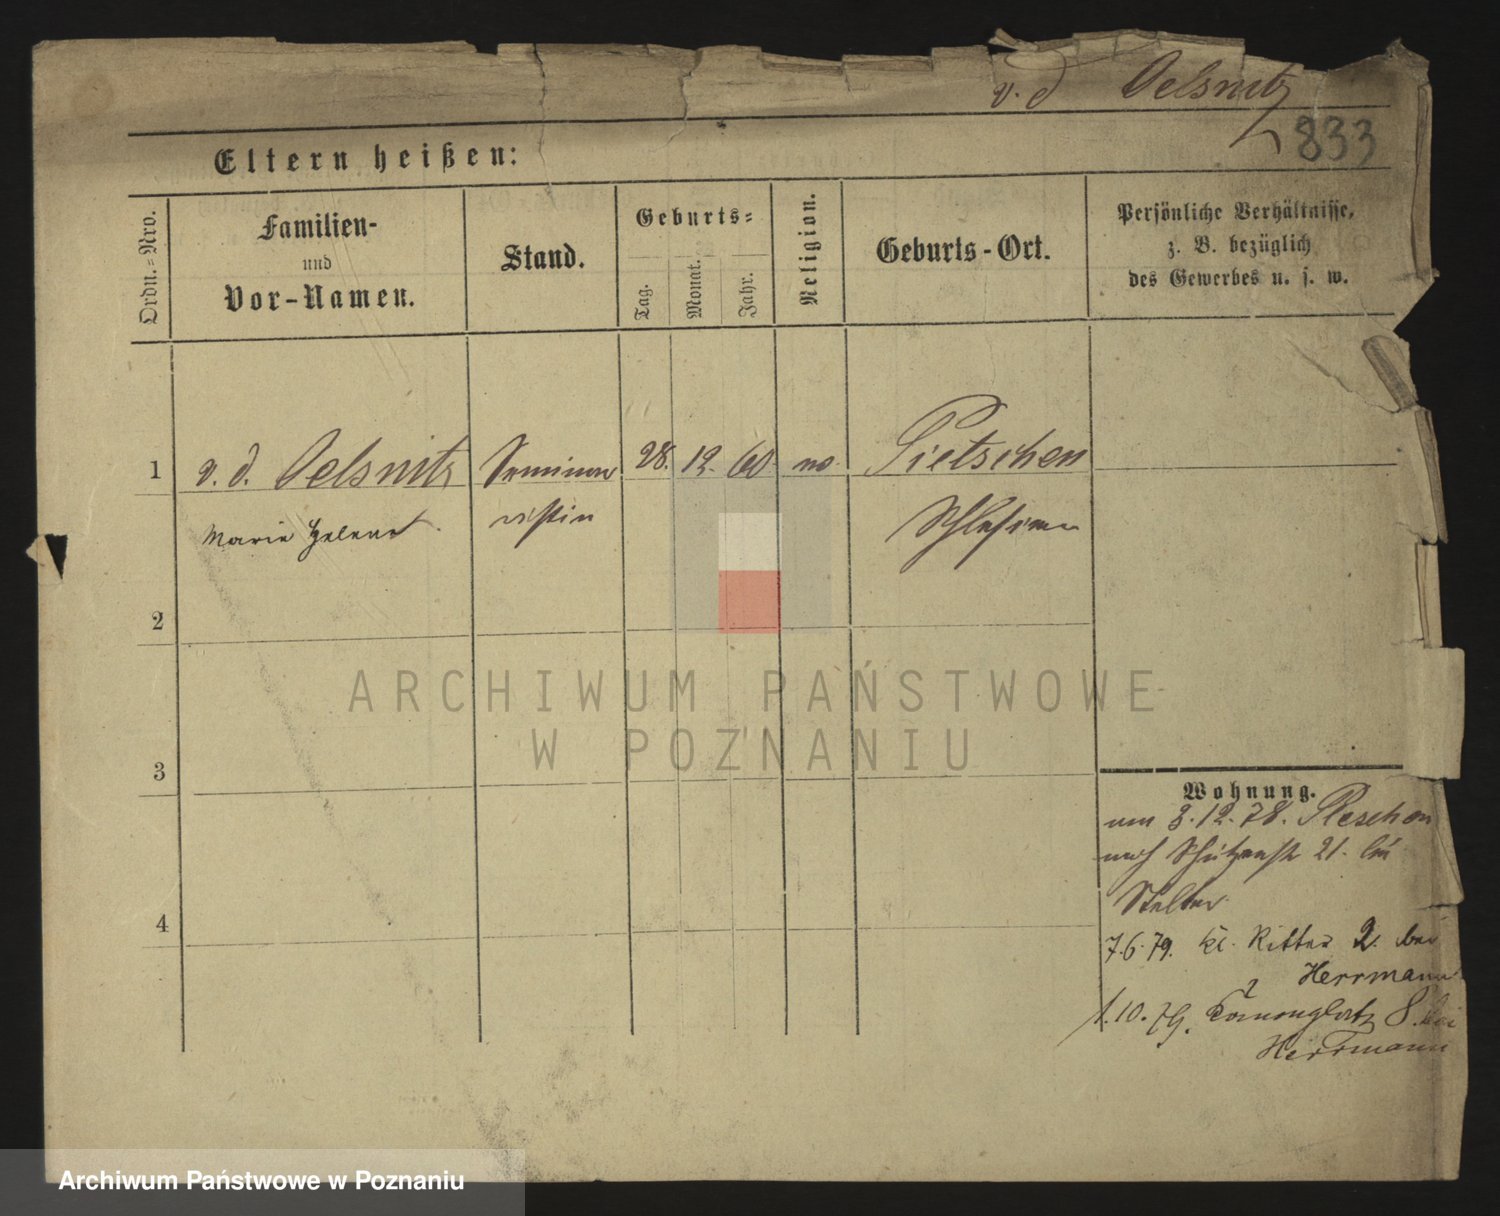 v. d Oelsnitz
833
Eltern heißen:
Ordn.-Nro.
Familien-
und
Vor-Namen.
Stand.
Geburts-
Tag.
Monat.
Jahr.
Religion.
Geburts-Ort.
Persönliche Verhältnisse,
z. B. bezüglich
des Gewerbes u. s. w.
1 v. d. Oelsnitz Seminar 28. 12. 60. Pietschen
Marie Helene ristin Schlesien
2
3
4
Wohnung.
3.12.78. Pleschen
nach Schützenstr 21. bei
Stelter
7.6.79. kl. Ritter 2. bei
Herrmann
1.10.79. 8. bei
Herrmann
ARCHIWUM PAŃSTWOWE
W POZNANIU
Archiwum Państwowe w Poznaniu